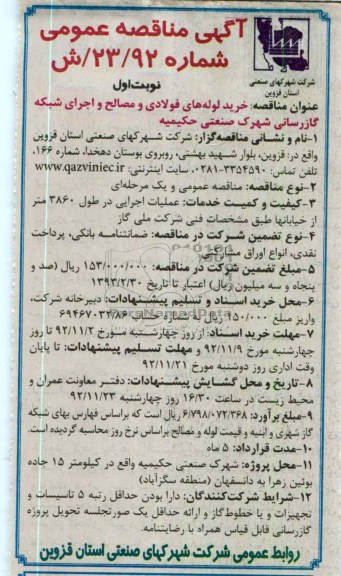 آگهی مناقصه عمومی
شماره ۲۳/۹۲/ش
شرکت شهرکهای صنعتی
استان قزوین
نوبت‌اول
عنوان مناقصه: خرید لوله‌های فولادی و مصالح و اجرای شبکه
گازرسانی شهرک صنعتی حکیمیه
۱-نام و نشانی مناقصه‌گزار: شرکت شهرکهای صنعتی استان قزوین
واقع در: قزوین، بلوار شهید بهشتی، روبروی بوستان دهخدا، شماره ۱۶۶.
تلفن تماس: ۳۳۵۴۵۹۰-۰۲۸۱ سایت اینترنتی: www.qazviniec.ir
۲-نوع مناقصه: مناقصه عمومی و یک مرحله‌ای
۳-کیفیت و کمیت خدمات: عملیات اجرایی در طول ۳۸۶۰ متر
از خیابانها طبق مشخصات فنی شرکت ملی گاز
۴-نوع تضمین شرکت در مناقصه: ضمانتنامه بانکی، پرداخت
نقدی، انواع اوراق مشارکت
۵-مبلغ تضمین شرکت در مناقصه: ۱۵۳/۰۰۰/۰۰۰ ریال (صد و
پنجاه و سه میلیون ریال) اعتبار تا تاریخ ۱۳۹۳/۲/۳۰
۶-محل خرید اسناد و تسلیم پیشنهادات: دبیرخانه شرکت،
واریز مبلغ ۱۵۰/۰۰۰ ریال به شماره حساب ۶۹۴۶۷۰۳۴/۸۶
۷-مهلت خرید اسناد: از روز چهارشنبه مورخ ۹۲/۱۱/۲ تا روز
چهارشنبه مورخ ۹۲/۱۱/۹ و مهلت تسلیم پیشنهادات: تا پایان
وقت اداری روز دوشنبه مورخ ۹۲/۱۱/۲۱
۸-تاریخ و محل گشایش پیشنهادات: دفتر معاونت عمران و
محیط زیست در ساعت ۱۶/۳۰ روز چهارشنبه ۹۲/۱۱/۲۳
۹-مبلغ برآورد: ۶/۷۹۸/۰۷۲/۳۶۸ ریال است که براساس فهارس بهای شبکه
گاز شهری و ابنیه و قیمت لوله و مصالح براساس نرخ روز محاسبه گردیده است.
۱۰-مدت قرارداد: ۵ ماه
۱۱-محل پروژه: شهرک صنعتی حکیمیه واقع در کیلومتر ۱۵ جاده
بوئین زهرا به دانسفهان (منطقه سگزآباد)
۱۲-شرایط شرکت‌کنندگان: دارا بودن حداقل رتبه ۵ تاسیسات و
تجهیزات و یا خطوط گاز و ارائه حداقل یک صورتجلسه تحویل پروژه
گازرسانی قابل قیاس همراه با رضایتنامه.
روابط عمومی شرکت شهرکهای صنعتی استان قزوین